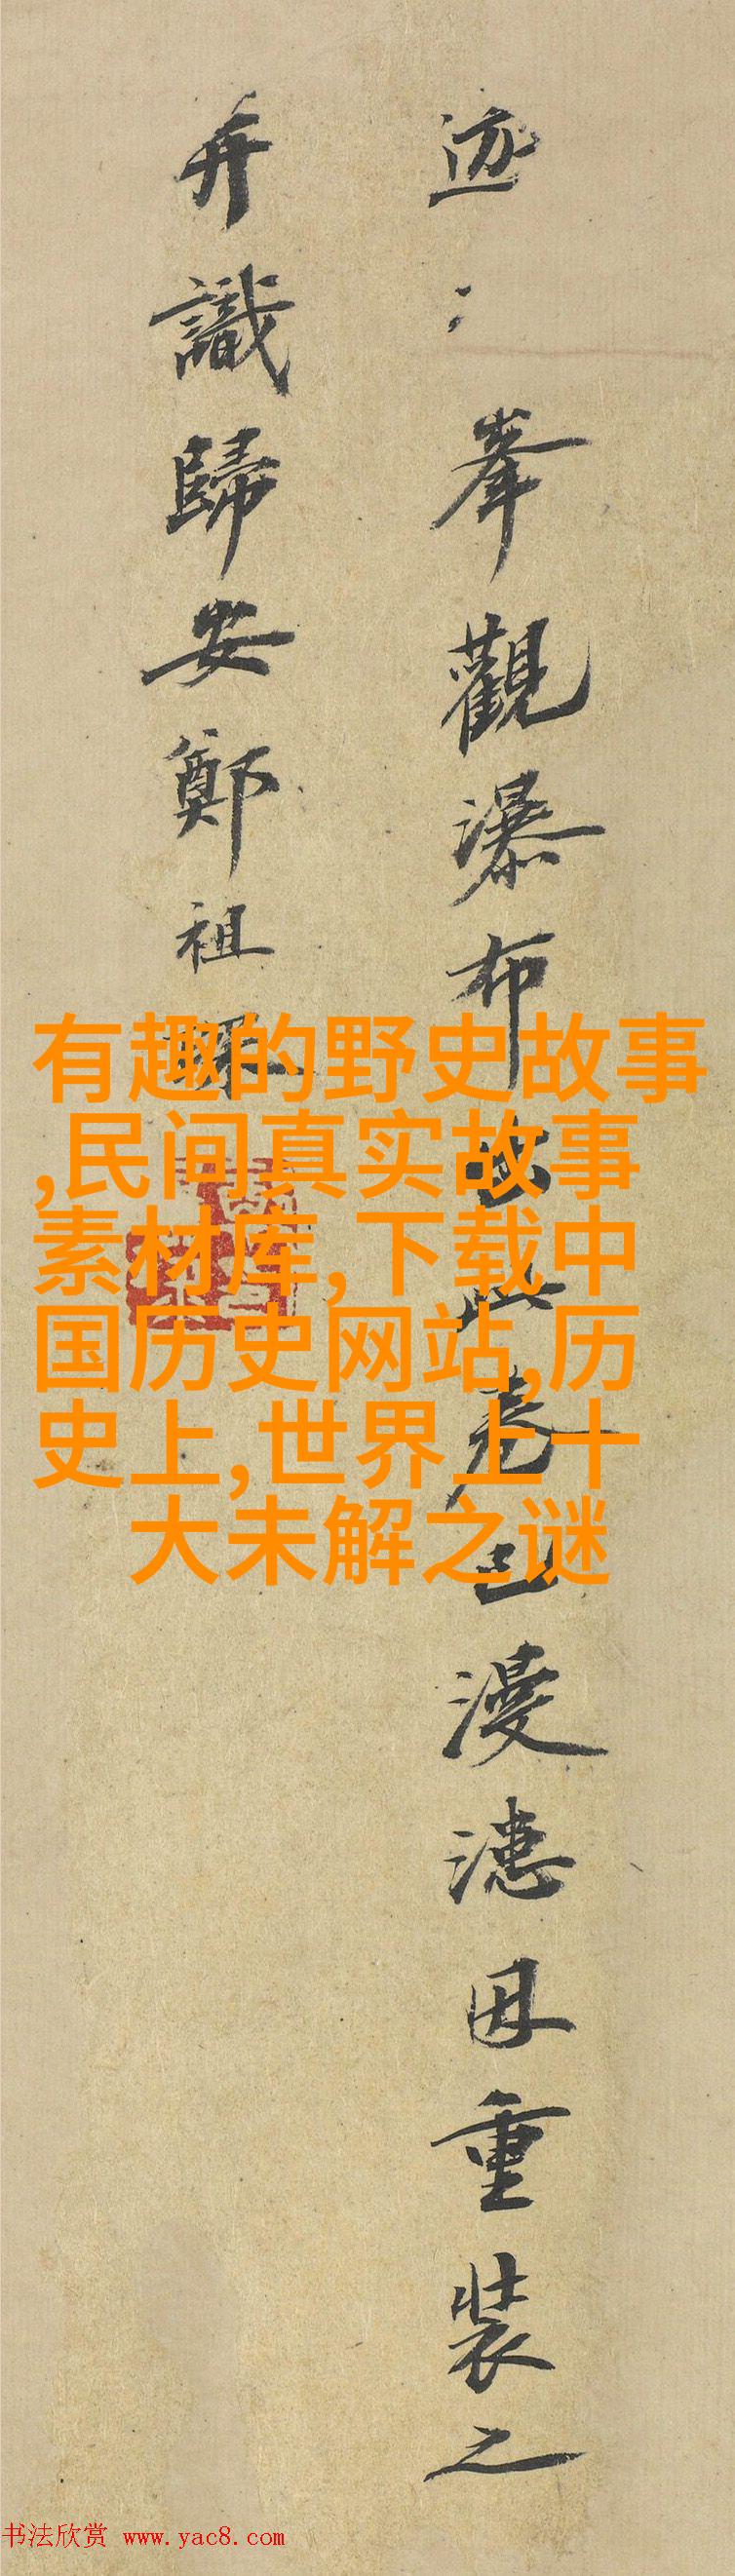 迹峯觀瀑布此卷已漫漶因重裝之
并識歸安鄭祖琛
有趣的野史故事
,民间真实故事
素材库,下载中
国历史网站,历
史上,世界上十
大未解之谜
书法欣赏 www.yac8.com